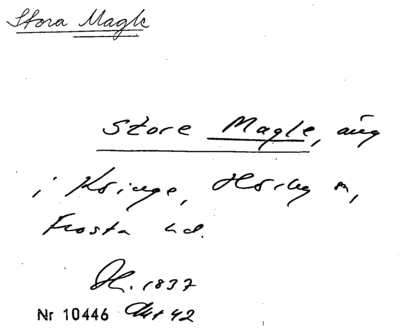 Stora Magle
Store Magle, äng
i Kringe, Hörby sn,
Frosta hd.
1837
Nr 10446 Akt 42